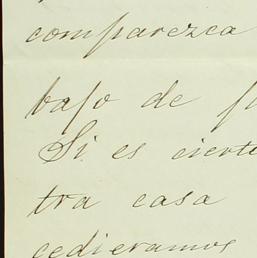 comparezca
bajo de
Si es cierto
tra casa
cedieramos